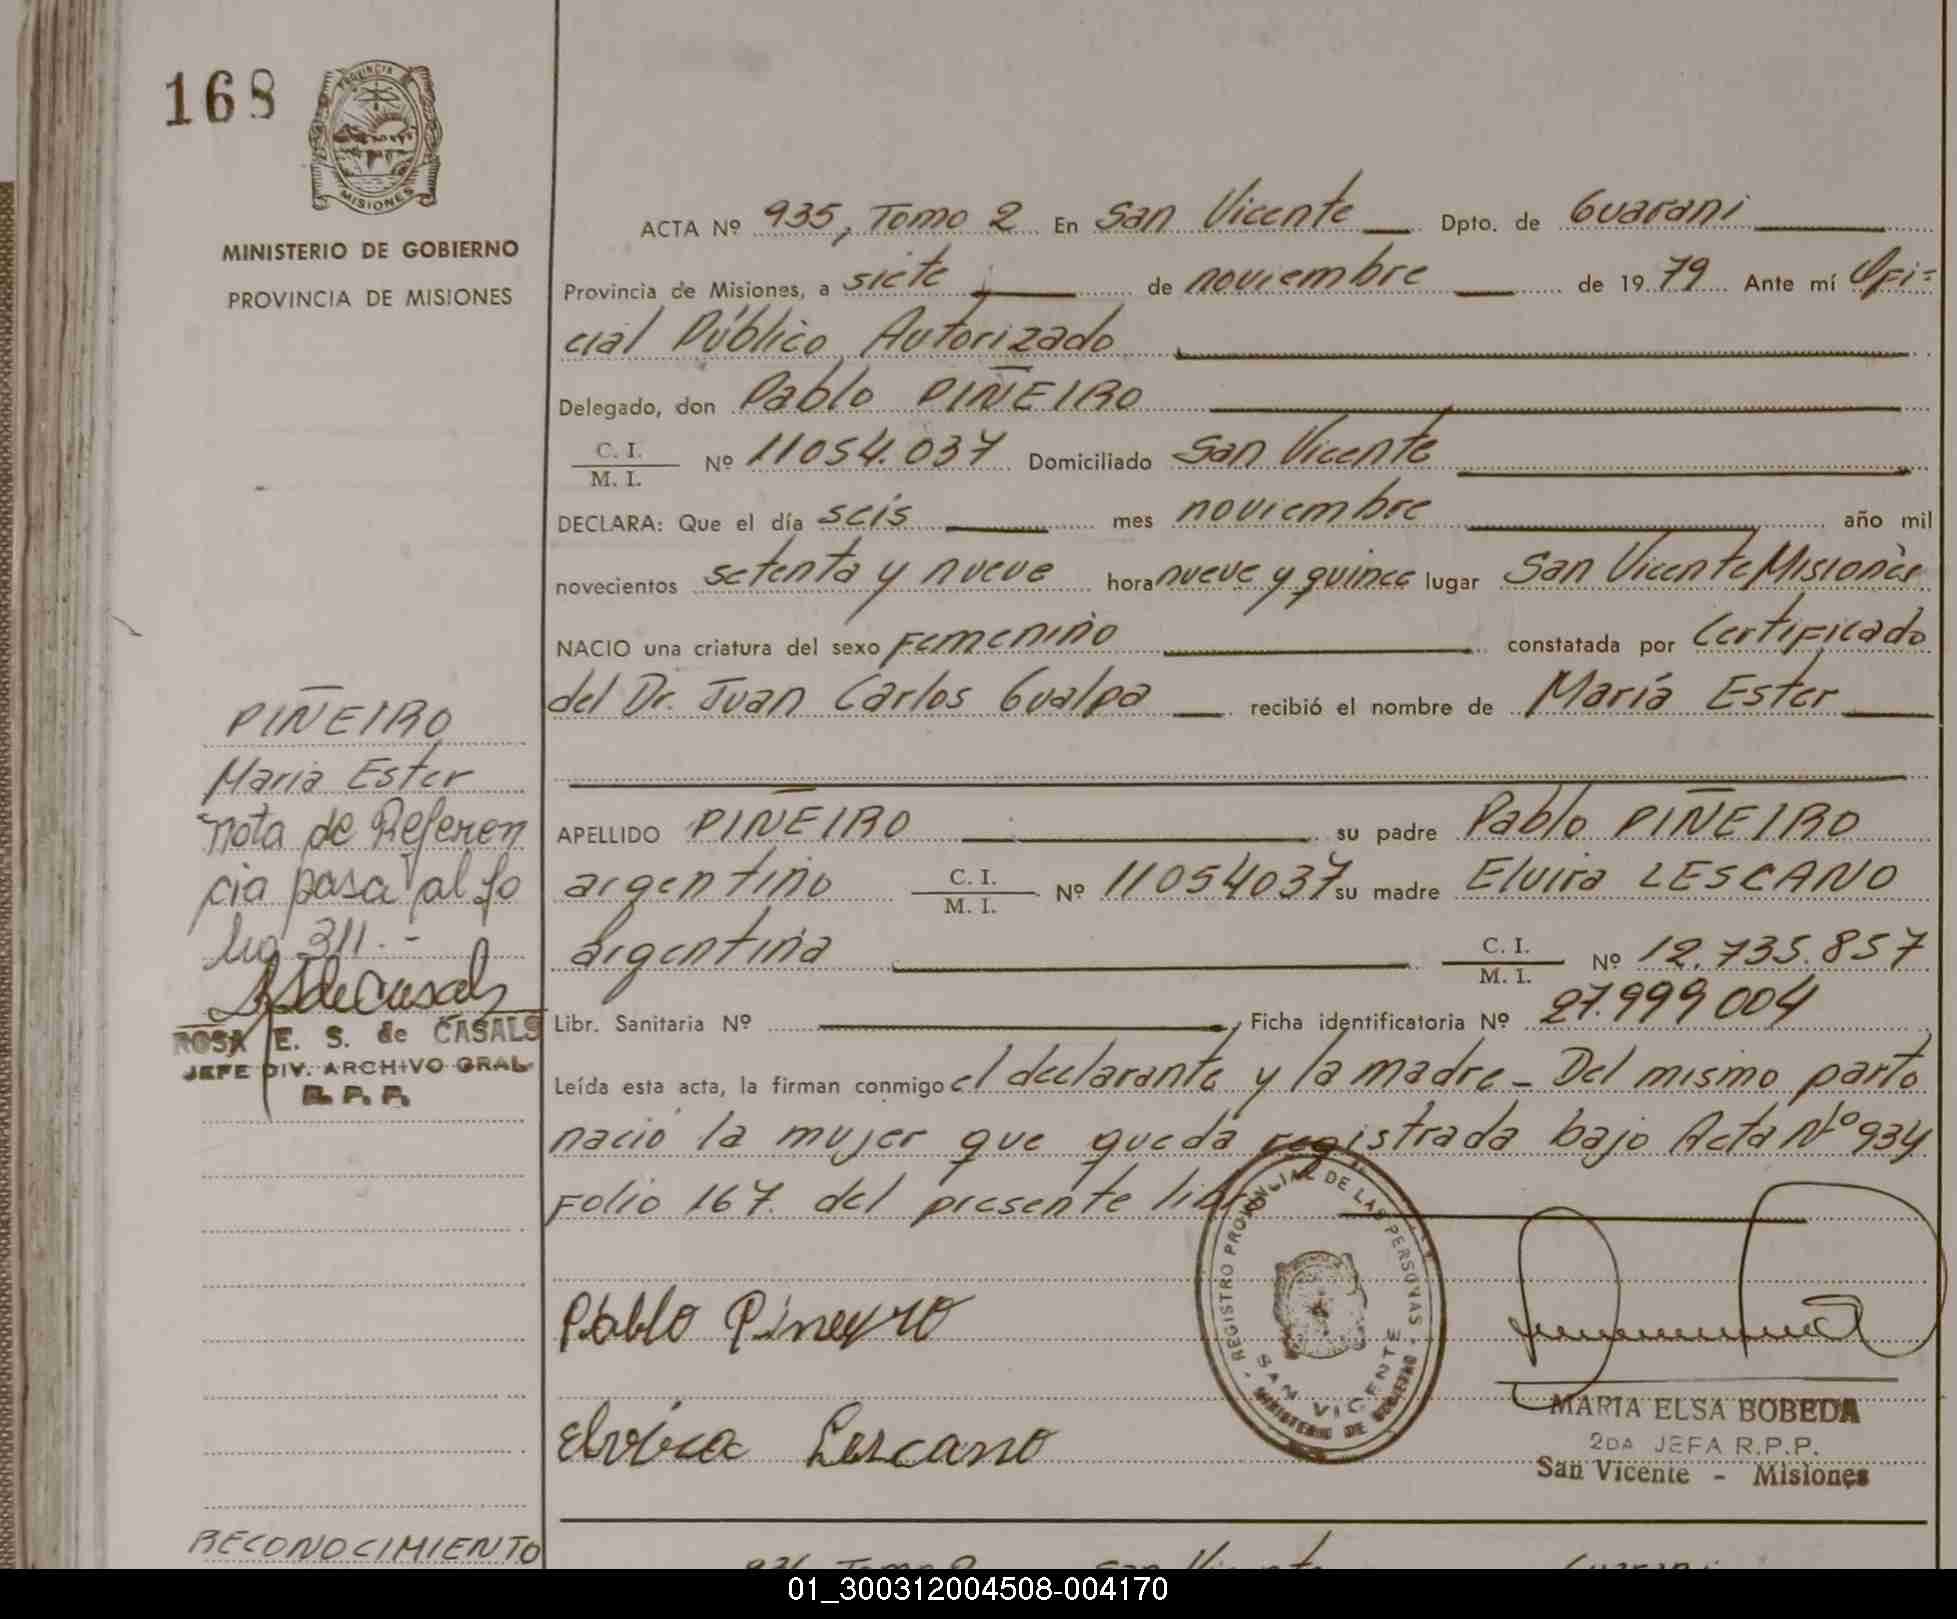 168
PROVINCIA
MISIONES
MINISTERIO DE GOBIERNO
PROVINCIA DE MISIONES
ACTA Nº 935, Tomo 2 En San Vicente Dpto. de Guarani
Provincia de Misiones, a siete de noviembre de 1979 Ante mí Ofi=
cial Público Autorizado
Delegado, don Pablo PIÑEIRO
C. I.
M. I. Nº 11054.037 Domiciliado San Vicente
DECLARA: Que el día seis mes noviembre año mil
novecientos setenta y nueve hora nueve y quince lugar San Vicente Misiones
NACIO una criatura del sexo Femenino constatada por Certificado
del Dr. Juan Carlos Gualpa recibió el nombre de María Ester
APELLIDO PIÑEIRO su padre Pablo PIÑEIRO
argentino C. I.
M. I. Nº 11054037 su madre Elvira LESCANO
argentina C. I.
M. I. Nº 12.735.857
Libr. Sanitaria Nº Ficha identificatoria Nº 27.999 004
Leída esta acta, la firman conmigo el declarante y la madre - Del mismo parto
nació la mujer que queda registrada bajo Acta Nº 934
Folio 167. del presente libro
PIÑEIRO
Maria Ester
nota de Referen
cia pasa al fo
lio 311.-
ROSA E. S. de CASALS
JEFE DIV. ARCHIVO GRAL
R. P. P.
Pablo Pineyro
Elvira Lescano
REGISTRO PROVINCIAL DE LAS PERSONAS
SAN VICENTE
MINISTERIO DE GOBIERNO
MARIA ELSA BOBEDA
2DA JEFA R.P.P.
San Vicente - Misiones
RECONOCIMIENTO
01_300312004508-004170